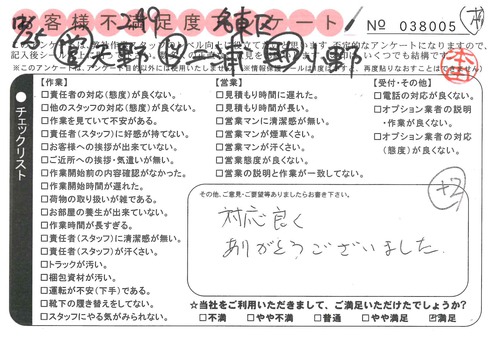 お客様不満足度アンケート! № 038005
12/25 249 名東区
【作業】
□責任者の対応(態度)が良くない。
□他のスタッフの対応(態度)が良くない。
□作業を見ていて不安がある。
□責任者(スタッフ)に好感が持てない。
□お客様への挨拶が出来ていない。
□ご近所への挨拶・気遣いが無い。
□作業開始前の内容確認がなかった。
□作業開始時間が遅れた。
□荷物の取り扱いが雑である。
□お部屋の養生が出来ていない。
□作業時間が長すぎる。
□責任者(スタッフ)に清潔感が無い。
□責任者(スタッフ)が汗くさい。
□トラックが汚い。
□梱包資材が汚い。
□運転が不安(下手)である。
□靴下の履き替えをしてない。
□スタッフにやる気がみられない。
【営業】
□見積もり時間に遅れた。
□見積もり時間が長い。
□営業マンに清潔感が無い。
□営業マンが煙草くさい。
□営業マンが汗くさい。
□営業態度が良くない。
□営業の説明と作業が一致してない。
【受付・その他】
□電話の対応が良くない。
□オプション業者の説明
・作業が良くない。
□オプション業者の対応
(態度)が良くない。
●チェックリスト
その他、ご意見・ご要望等ありましたらお書き下さい。
対応良く
ありがとうございました
☆当社をご利用いただきまして、ご満足いただけたでしょうか?
□不満 □やや不満 □普通 □やや満足 ☑満足